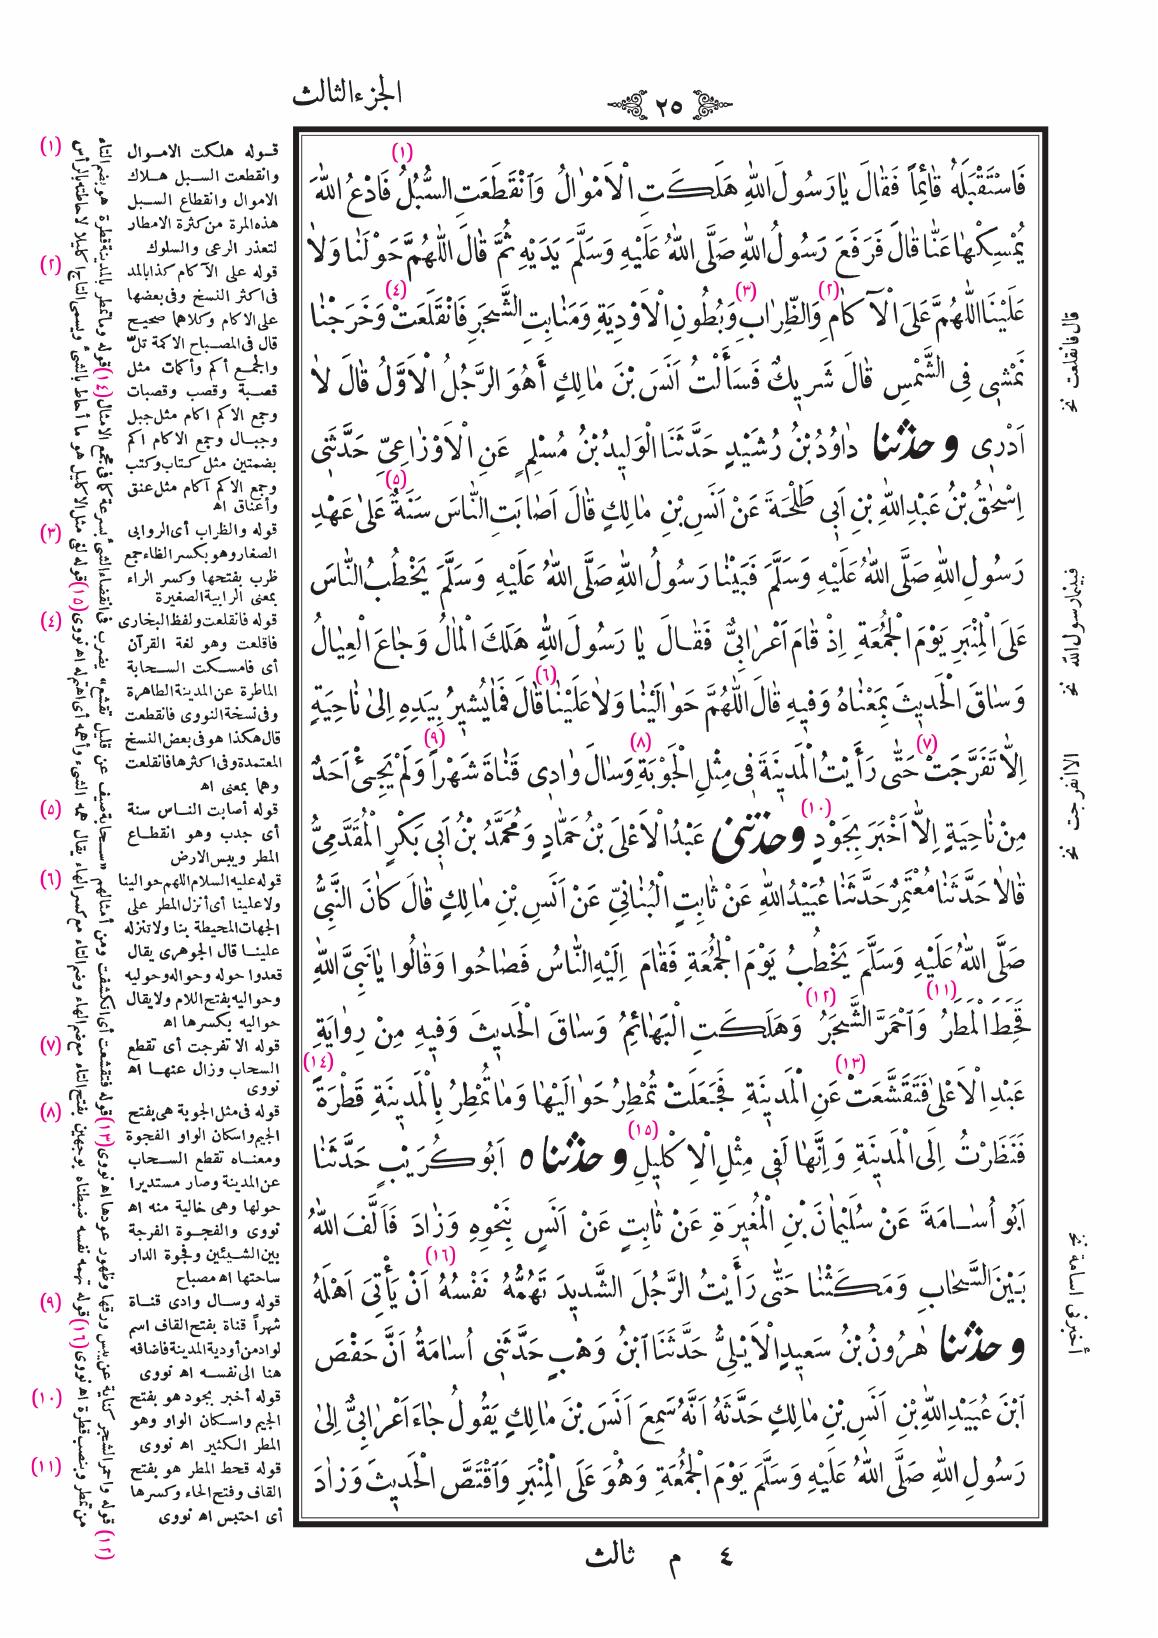 الجزء الثالث
٢٥
فَاسْتَقْبَلَهُ قَائِمًا فَقَالَ يَا رَسُولَ اللهِ هَلَكَتِ الْاَمْوَالُ وَانْقَطَعَتِ السُّبُلُ (١) فَادْعُ اللهَ
يُمْسِكْهَا عَنَّا قَالَ فَرَفَعَ رَسُولُ اللهِ صَلَّى اللهُ عَلَيْهِ وَسَلَّمَ يَدَيْهِ ثُمَّ قَالَ اللّٰهُمَّ حَوْلَنَا وَلَا
عَلَيْنَا اللّٰهُمَّ عَلَى الْآكَامِ (٢) وَالظِّرَابِ (٣) وَبُطُونِ الْاَوْدِيَةِ وَمَنَابِتِ الشَّجَرِ فَانْقَلَعَتْ (٤) وَخَرَجْنَا
نَمْشِى فِى الشَّمْسِ قَالَ شَرِيكٌ فَسَأَلْتُ اَنَسَ بْنَ مَالِكٍ أَهُوَ الرَّجُلُ الْاَوَّلُ قَالَ لَا
اَدْرِى وحدثنا دَاوُدُ بْنُ رُشَيْدٍ حَدَّثَنَا الْوَلِيدُ بْنُ مُسْلِمٍ عَنِ الْاَوْزَاعِىِّ حَدَّثَنِى
اِسْحٰقُ بْنُ عَبْدِ اللهِ بْنِ اَبِى طَلْحَةَ عَنْ اَنَسِ بْنِ مَالِكٍ قَالَ اَصَابَتِ النَّاسَ سَنَةٌ (٥) عَلٰى عَهْدِ
رَسُولِ اللهِ صَلَّى اللهُ عَلَيْهِ وَسَلَّمَ فَبَيْنَا رَسُولُ اللهِ صَلَّى اللهُ عَلَيْهِ وَسَلَّمَ يَخْطُبُ النَّاسَ
عَلَى الْمِنْبَرِ يَوْمَ الْجُمُعَةِ اِذْ قَامَ اَعْرَابِىٌّ فَقَالَ يَا رَسُولَ اللهِ هَلَكَ الْمَالُ وَجَاعَ الْعِيَالُ
وَسَاقَ الْحَدِيثَ بِمَعْنَاهُ وَفِيهِ قَالَ اللّٰهُمَّ حَوَالَيْنَا وَلَا عَلَيْنَا (٦) قَالَ فَمَا يُشِيرُ بِيَدِهِ اِلٰى نَاحِيَةٍ
اِلَّا تَفَرَّجَتْ (٧) حَتّٰى رَأَيْتُ الْمَدِينَةَ فِى مِثْلِ الْجَوْبَةِ (٨) وَسَالَ وَادِى قَنَاةَ شَهْراً (٩) وَلَمْ يَجِىءْ اَحَدٌ
مِنْ نَاحِيَةٍ اِلَّا اَخْبَرَ بِجَوْدٍ (١٠) وحدثنى عَبْدُ الْاَعْلَى بْنُ حَمَّادٍ وَمُحَمَّدُ بْنُ اَبِى بَكْرٍ الْمُقَدَّمِىُّ
قَالَا حَدَّثَنَا مُعْتَمِرٌ حَدَّثَنَا عُبَيْدُ اللهِ عَنْ ثَابِتٍ الْبُنَانِىِّ عَنْ اَنَسِ بْنِ مَالِكٍ قَالَ كَانَ النَّبِىُّ
صَلَّى اللهُ عَلَيْهِ وَسَلَّمَ يَخْطُبُ يَوْمَ الْجُمُعَةِ فَقَامَ اِلَيْهِ النَّاسُ فَصَاحُوا وَقَالُوا يَا نَبِىَّ اللهِ
قَحَطَ الْمَطَرُ (١١) وَاحْمَرَّ الشَّجَرُ (١٢) وَهَلَكَتِ الْبَهَائِمُ وَسَاقَ الْحَدِيثَ وَفِيهِ مِنْ رِوَايَةِ
عَبْدِ الْاَعْلٰى فَتَقَشَّعَتْ (١٣) عَنِ الْمَدِينَةِ فَجَعَلَتْ تُمْطِرُ حَوَالَيْهَا وَمَا تُمْطِرُ بِالْمَدِينَةِ قَطْرَةً (١٤)
فَنَظَرْتُ اِلَى الْمَدِينَةِ وَاِنَّهَا لَفِى مِثْلِ الْاِكْلِيلِ (١٥) وحدثناه اَبُو كُرَيْبٍ حَدَّثَنَا
اَبُو اُسَامَةَ عَنْ سُلَيْمَانَ بْنِ الْمُغِيرَةِ عَنْ ثَابِتٍ عَنْ اَنَسٍ بِنَحْوِهِ وَزَادَ فَاَلَّفَ اللهُ
بَيْنَ السَّحَابِ وَمَكَثْنَا حَتّٰى رَأَيْتُ الرَّجُلَ الشَّدِيدَ تَهُمُّهُ نَفْسُهُ (١٦) اَنْ يَأْتِىَ اَهْلَهُ
وحدثنا هٰرُونُ بْنُ سَعِيدٍ الْاَيْلِىُّ حَدَّثَنَا ابْنُ وَهْبٍ حَدَّثَنِى اُسَامَةُ اَنَّ حَفْصَ
ابْنَ عُبَيْدِ اللهِ بْنِ اَنَسِ بْنِ مَالِكٍ حَدَّثَهُ اَنَّهُ سَمِعَ اَنَسَ بْنَ مَالِكٍ يَقُولُ جَاءَ اَعْرَابِىٌّ اِلٰى
رَسُولِ اللهِ صَلَّى اللهُ عَلَيْهِ وَسَلَّمَ يَوْمَ الْجُمُعَةِ وَهُوَ عَلَى الْمِنْبَرِ وَاقْتَصَّ الْحَدِيثَ وَزَادَ
قال فانقلعت نخ
فبينما رسول الله نخ
الا انفرجت نخ
أخبرنى اسامة نخ
(١) قوله هلكت الاموال
وانقطعت السبل هلاك
الاموال وانقطاع السبل
هذه المرة من كثرة الامطار
لتعذر الرعى والسلوك
(٢) قوله على الآكام كذا بالمد
فى اكثر النسخ وفى بعضها
على الاكام وكلاهما صحيح
قال فى المصباح الاكمة تلّ
والجمع أكم وأكمات مثل
قصبة وقصب وقصبات
وجمع الاكم اكام مثل جبل
وجبال وجمع الاكام اكم
بضمتين مثل كتاب وكتب
وجمع الاكم آكام مثل عنق
وأعناق اه
(٣) قوله والظراب أى الروابى
الصغار وهو بكسر الظاء جمع
ظرب بفتحها وكسر الراء
بمعنى الرابية الصغيرة
(٤) قوله فانقلعت ولفظ البخارى
فاقلعت وهو لغة القرآن
أى فامسكت السحابة
الماطرة عن المدينة الطاهرة
وفى نسخة النووى فانقطعت
قال هكذا هو فى بعض النسخ
المعتمدة وفى اكثرها فانقلعت
وهما بمعنى اه
(٥) قوله أصابت الناس سنة
أى جدب وهو انقطاع
المطر ويبس الارض
(٦) قوله عليه السلام اللهم حوالينا
ولا علينا أى أنزل المطر على
الجهات المحيطة بنا ولا تنزله
علينا قال الجوهرى يقال
قعدوا حوله وحواله وحوليه
وحواليه بفتح اللام ولا يقال
حواليه بكسرها اه
(٧) قوله الا تفرجت أى تقطع
السحاب وزال عنها اه
نووى
(٨) قوله فى مثل الجوبة هى بفتح
الجيم واسكان الواو الفجوة
ومعناه تقطع السحاب
عن المدينة وصار مستديرا
حولها وهى خالية منه اه
نووى والفجوة الفرجة
بين الشيئين وفجوة الدار
ساحتها اه مصباح
(٩) قوله وسال وادى قناة
شهراً قناة بفتح القاف اسم
لواد من أودية المدينة فاضافه
هنا الى نفسه اه نووى
(١٠) قوله أخبر بجود هو بفتح
الجيم واسكان الواو وهو
المطر الكثير اه نووى
(١١) قوله قحط المطر هو بفتح
القاف وفتح الحاء وكسرها
أى احتبس اه نووى
(١٢) قوله واحمر الشجر كناية عن يبس ورقها وظهور عودها اه نووى (١٣) قوله فتقشعت أى انكشفت ومن أمثالهم «سحابة صيف عن قليل تقشع» يضرب فى انقضاء الشىء بسرعة كما فى مجمع الامثال (١٤) قوله وما تمطر بالمدينة قطرة هو بضم التاء
من تمطر وبنصب قطرة اه نووى (١٦) قوله تهمه نفسه ضبطناه بوجهين بفتح التاء مع ضم الهاء وضم التاء مع كسر الهاء يقال همه الشىء وأهمه أى اهتم له اه نووى (١٥) قوله لفى مثل الاكليل هو ما أحاط بالشىء ويسمى التاج اكليلا لاحاطته بالرأس
٤ م ثالث